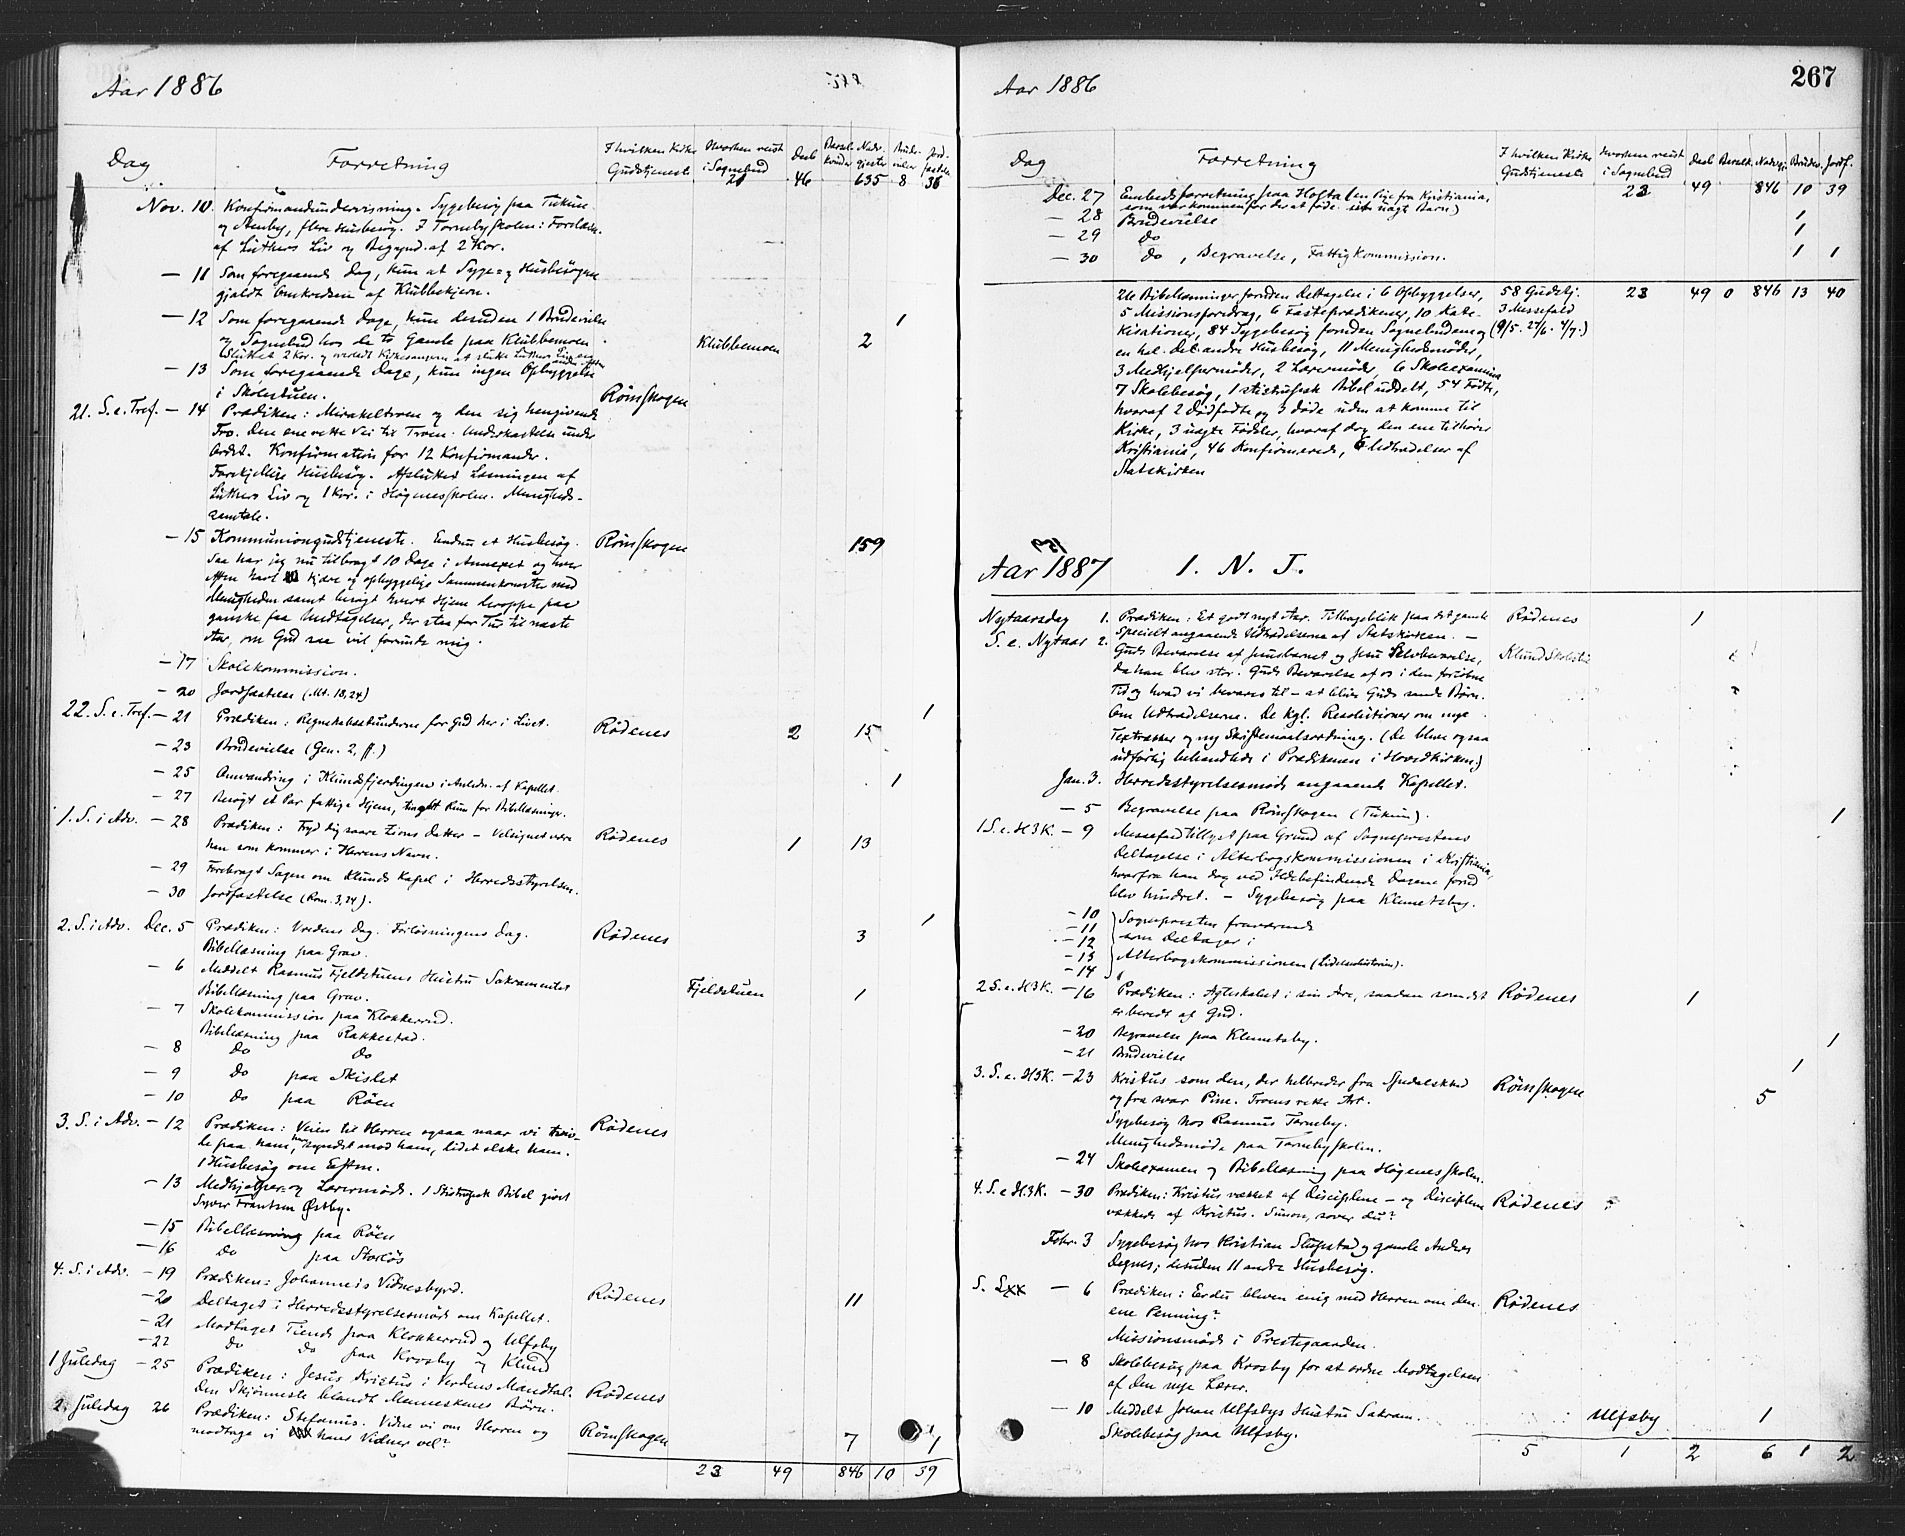 Aar 1886
Dag
Forretning
I hvilken Kirke Gudstjeneste
Hvorhen reist i Sognebud
Daab
Nadv. gjester
Brude vielser
Jord. fæstelse
21 46 635 8 36
Nov. 10. Konfirmandundervisning. Sygebesøg paa Tukun
og Aenby, flere Husbesøg. I Tørnbyskolen: Forelæsn.
af Luthers Liv og Begynd. af 2 Kor.
— 11 Som foregaaende Dag, kun at Syge= og Husbesøgene
gjaldt Omkredsen af Klubbekjern.
— 12 Som foregaaende Dage, kun desuden 1 Brudevielse 1
og Sognebud hos de to Gamle paa Klubbemoen Klubbemoen 2
— 13 Som foregaaende Dage, kun ingen Opbyggelse
i Skolestuen.
21. S. e. Tref. — 14 Prædiken: Mirakeltroen og den sig hengivende Rømskogen
Tro. Den ene rette Vei til Troen. Underkastelse under
Ordet. Konfirmation for 12 Konfirmander.
Forskjellige Husbesøg. Afsluttet Læsningen af
Luthers Liv og 1 Kor. i Høgnesskolen. Menigheds-
samtale.
— 15 Kommuniongudstjeneste. Endnu et Husbesøg. Rømskogen 159
Saa har jeg nu tilbragt 10 Dage i Annexet og hver
Aften havt kjære og opbyggelige Sammenkomster med
Menigheden samt besøgt hvert Hjem deroppe paa
ganske faa Undtagelser, der staa for Tur til næste
Aar, om Gud saa vil forunde mig.
— 17 Skolekommission.
— 20 Jordfæstelse (Mt. 18,24) 1
22. S. e. Tref. — 21 Prædiken: Regnskabsstunderne for Gud her i Livet. Rødenes 2 15
— 23 Brudevielse (Gen. 2, ff.) 1
— 25 Omvandring i Klundsfjerdingen i Anledn. af Kapellet.
— 27 Besøgt et Par fattige Hjem, tinget Rum for Bibellæsninger.
1. S. i Adv. — 28 Prædiken: Fryd dig saare Zions Datter — Velsignet være Rødenes 1 13
han som kommer i Herrens Navn.
— 29 Forebragt Sagen om Klunds Kapel i Herredsstyrelsen.
— 30 Jordfæstelse (Rom. 3,24). 1
2. S. i Adv. Dec. 5 Prædiken: Vredens Dag. Forløsningens Dag. Rødenes 3
Bibellæsning paa Grav.
— 6 Meddelt Rasmus Fjeldstuens Hustru Sakramentet Fjeldstuen 1
Bibellæsning paa Grav.
— 7 Skolekommission paa Klokkerud.
Bibellæsning paa Rakkestad.
— 8 Do Do
— 9 Do paa Skislet
— 10 Do paa Røen
3. S. i Adv. — 12 Prædiken: Veien til Herren ogsaa naar vi tviv- Rødenes
le paa ham, har syndet mod ham, lidet elske ham.
1 Husbesøg om Eftm.
— 13 Medhjelper- og Lærermøde. 1 Stiftrupsk Bibel givet
Syver Frantsen Østby.
— 15 Bibellæsning paa Røen
— 16 Do paa Storløs
4. S. i Adv. — 19 Prædiken: Johanneis Vidnesbyrd. Rødenes 11
— 20 Deltaget i Herredsstyrelsesmøde om Kapellet.
— 21 Modtaget Tiende paa Klokkerud og Ulfsby
— 22 Do Do paa Krosby og Klund
1 Juledag — 25 Prædiken: Jesus Kristus i Verdens Mandtal. Rødenes
Den Skjønneste blandt Menneskenes Børn.
2. Juledag 26 Prædiken: Stefanus. Vidne vi om Herren og Rømskogen 7 1
modtage vi hans Vidner vel?
23 49 846 10 39
Aar 1886
267
Dag
Forretning
I hvilken Kirke Gudstjeneste
Hvorhen reist i Sognebud
Daab Berett. Nadvg. Brudev. Jordf.
23 49 846 10 39
Dec. 27 Embedsforretning paa Hofta (en Pige fra Kristiania,
som var kommen for der at føde uægt Barn)
— 28 Brudevielse 1
— 29 Do 1
— 30 Do, Begravelse, Fattigkommission. 1 1
26 Bibellæsninger foruden Deltagelse i 6 Opbyggelser, 58 Gudstj. 23 49 0 846 13 40
5 Missionsforedrag, 6 Fasteprædikener, 10 Kate- 3 Messefald
kisationer, 84 Sygebesøg foruden Sognebudene og (9/5. 27/6. 4/7.)
en hel Del andre Husbesøg, 11 Menighedsmøder,
3 Medhjelpermøder, 2 Lærermøder, 6 Skoleexamina
7 Skolebesøg, 1 stistrupsk Bibel uddelt, 54 Fødte,
hvoraf 2 Dødfødte og 3 døde uden at komme til
Kirke, 3 uægte Fødsler, hvoraf dog den ene tilhører
Kristiania, 46 Konfirmerede, 6 Udtrædelser af
Statskirken
Aar 1887 I. N. J.
Nytaarsdag 1. Prædiken: Et godt nyt Aar. Tilbageblik paa det gamle Rødenes 1
Specielt angaaende Udtrædelserne af Statskirken. —
S. e. Nytaar 2. Guds Bevarelse af Jesusbarnet og Jesu Selvbevarelse, Klund Skolestue
da han blev stor. Guds Bevarelse af os i den forløbne
Tid og hvad vi bevares til — at blive Guds sande Børn.
Om Udtrædelserne. De kgl. Resolutioner om nye
Textrækker og ny Skriftemaalsordning. (De blive ogsaa
udførlig behandlede i Prædikenen i Hovedkirken)
Jan. 3. Herredsstyrelsesmøde angaaende Kapellet.
— 5 Begravelse paa Rømskogen (Tukun). 1
1 S. e. H3K. — 9 Messefald tillyst paa Grund af Sognepræstens
Deltagelse i Alterbogskommissionen i Kristiania,
hvorfra han dog ved Ildebefindende Dagene forud
blev hindret. — Sygebesøg paa Klemetsby.
— 10 Sognepræsten fraværende
— 11
— 12 som Deltager i
— 13 Alterbogskommissionen (Lidelseshistorien).
— 14
2 S. e. H3K. — 16 Prædiken: Ægteskabet i sin Ære, saadan som det Rødenes 1
er beredt af Gud.
— 20 Begravelse paa Klemetsby. 1
— 21 Brudevielse 1
3. S. e. H3K. — 23 Kristus som den, der helbreder fra Spedalskhed Rømskogen 5
og fra svar Pine. Troens rette Art.
Sygebesøg hos Rasmus Tørneby.
Menighedsmøde paa Tørnebyskolen.
— 24 Skoleexamen og Bibellæsning paa Høgenesskolen.
4. S. e H3K. — 30 Prædiken: Kristus vækket af Disciplene — og Disciplene Rødenes
vækkede af Kristus. Simon, sover du?
Febr. 3 Sygebesøg hos Kristian Slupstad og gamle Anders
Degnes; desuden 11 andre Husbesøg.
S. Lxx — 6 Prædiken: Er du bleven enig med Herren om den Rødenes
ene Penning?
Missionsmøde i Prestegaarden.
— 8 Skolebesøg paa Krosby for at ordne Modtagelsen
af den nye Lærer.
— 10 Meddelt Johan Ulfsbys Hustru Sakram. Ulfsby 1
Skolebesøg paa Ulfsby.
5 1 2 6 1 2